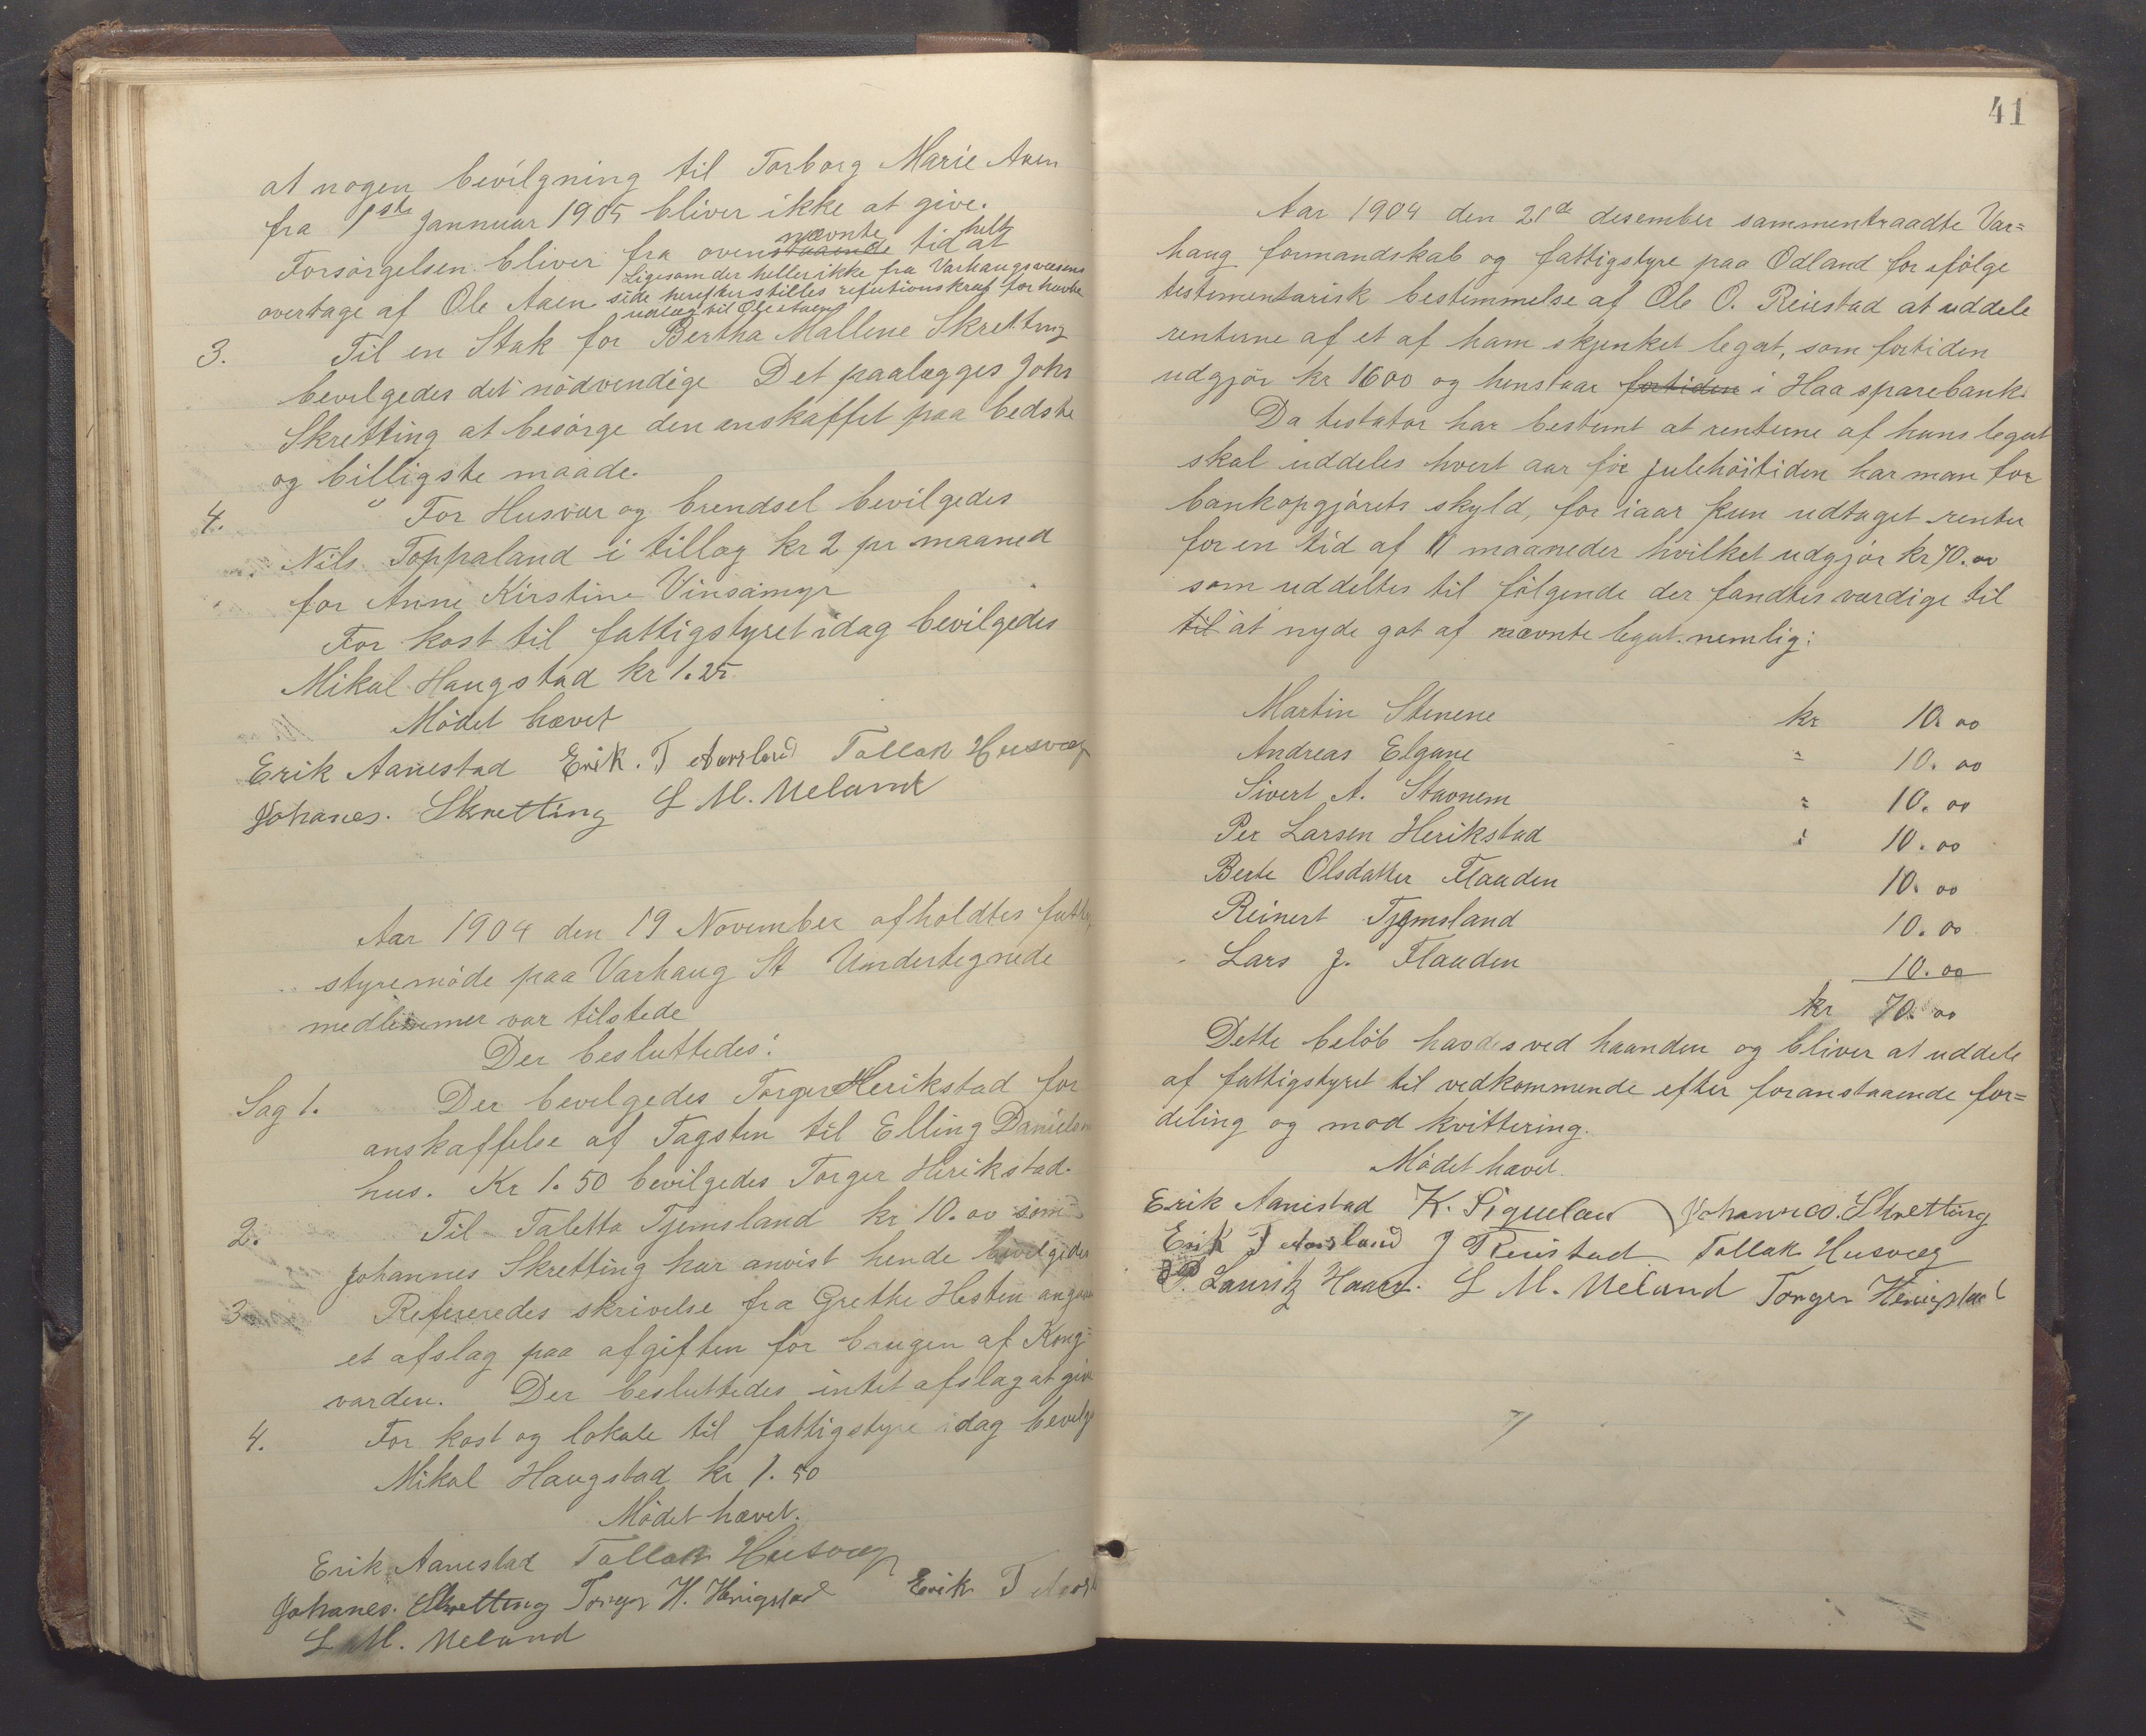 at nogen bevilgning til Torborg Marie Aaen
fra 1ste Jannuar 1905 bliver ikke at give.
Forsörgelsen bliver fra ovenstaaende nævnte tid helt at
overtage af Ole Aaen Ligesom der heller ikke fra Varhaugs væsens
side herefter stilles refutionskrav for havte
udlæg til Ole Aaen
3. Til en Stak for Bertha Mallene Skretting
bevilgedes det nödvendige Det paalægges Johs
Skretting at besörge den anskaffet paa bedste
og billigste maade.
4. For Husvær og brendsel bevilgedes
Nils Toppaland i tillæg kr 2 pr maaned
for Anne Kirstine Vinsamyr
For kost til fattigstyret idag bevilgedes
Mikal Haugstad kr 1.25
Mödet hævet
Erik Aanestad Erik. T Aarsland Tallak Husvæg
Johanes. Skretting L M. Meland
Aar 1904 den 19 November afholdtes fattig
styremöde paa Varhaug St Undertegnede
medlemmer var tilstede
Der besluttedes:
Sag 1. Der bevilgedes Torger Herikstad for
anskaffelse af Tagsten til Elling Danielsen
hus. Kr 1.50 bevilgedes Torger Herikstad.
2. Til Taletta Tjemsland kr 10.00 som
Johannes Skretting har anvist hende bevilgedes
3. Refereredes skrivelse fra Grethe Hesten angaa
et afslag paa afgiften for brugen af Kong-
varden. Der besluttedes intet afslag at give
4. For kost og lokale til fattigstyre idag bevilg
Mikal Haugstad kr 1.50
Mödet hævet.
Erik Aanestad Tallak Husvæg
Johanes. Skretting Torger H. Herigstad Erik T Aarsl
L M. Meland
41
Aar 1904 den 21de desember sammentraadte Var=
haug formandskab og fattigstyre paa Ödland for ifölge
testementarisk bestemmelse af Ole O. Reiestad at uddele
renterne af et af ham skjenket legat, som fortiden
udgjör kr 1600 og henstaar fortiden i Haa sparebank.
Da testator har bestemt at renterne af hans legat
skal uddeles hvert aar för julehöitiden har man for
bankopgjörets skyld, for iaar kun udtaget renter
for en tid af 11 maaneder hvilket udgjör kr 70.00
som uddeltes til fölgende der fandtes værdige til
til at nyde got af nævnte legat. nemlig:
Martin Stenene kr 10.00
Andreas Elgane " 10.00
Sivert A. Stavnem " 10.00
Per Larsen Herikstad " 10.00
Berte Olsdatter Flaaden 10.00
Reinert Tjemsland 10.00
Lars J. Flaaden 10.00
kr 70.00
Dette belöb havdes ved haanden og bliver at uddele
af fattigstyret til vedkommende efter foranstaaende for=
deling og mod kvittering.
Mödet hævet.
Erik Aanestad K. Siquelan Johannes. Skretting
Erik T Aarsland J Reiestad Tallak Husvæg
Lauritz Haar. L M. Meland Torger Herigstad